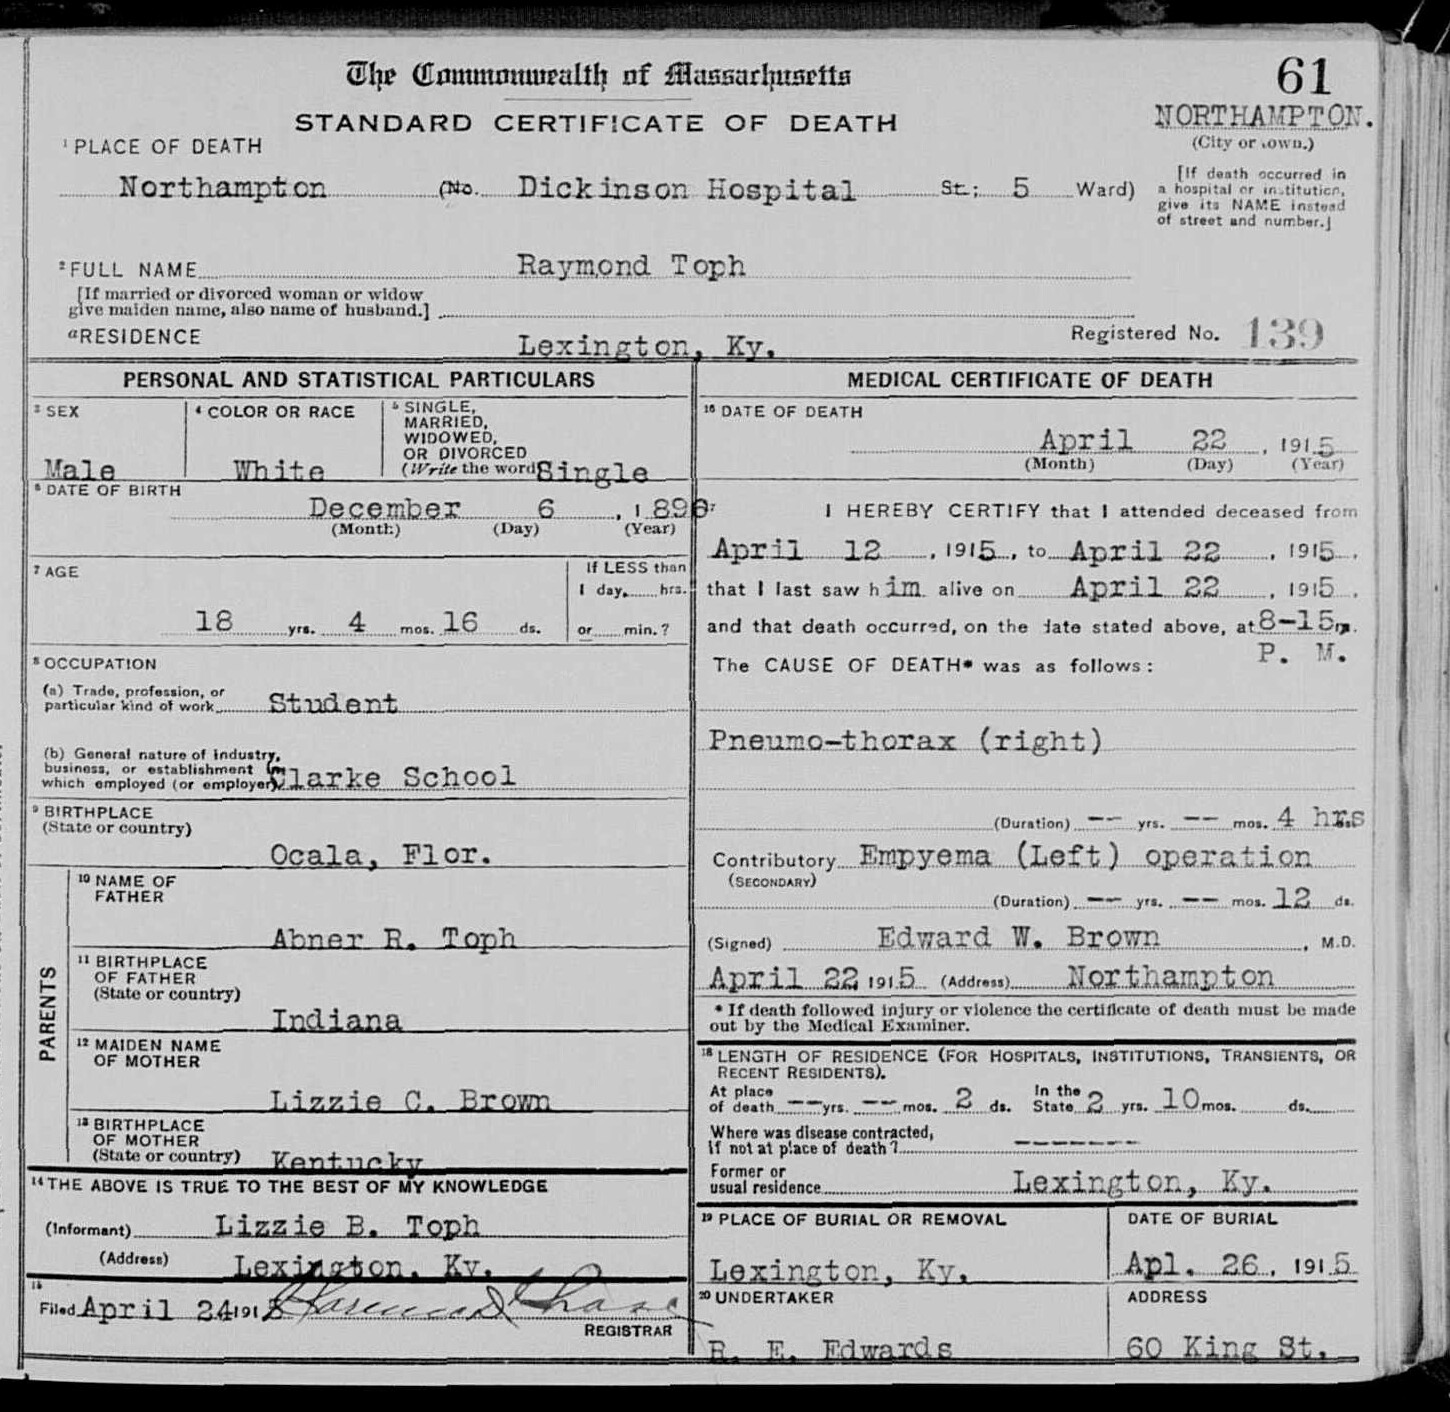 The Commonwealth of Massachusetts
61
STANDARD CERTIFICATE OF DEATH
NORTHAMPTON.
(City or town.)
1 PLACE OF DEATH
Northampton (No. Dickinson Hospital St.; 5 Ward)
[If death occurred in
a hospital or institution,
give its NAME instead
of street and number.]
2 FULL NAME Raymond Toph
[If married or divorced woman or widow
give maiden name, also name of husband.]
a RESIDENCE Lexington, Ky.
Registered No. 139
PERSONAL AND STATISTICAL PARTICULARS
3 SEX
Male
4 COLOR OR RACE
White
5 SINGLE,
MARRIED,
WIDOWED,
OR DIVORCED
(Write the word) Single
6 DATE OF BIRTH
December 6, 1896
(Month) (Day) (Year)
7 AGE
18 yrs. 4 mos. 16 ds.
If LESS than
1 day, hrs.
or min.?
8 OCCUPATION
(a) Trade, profession, or
particular kind of work Student
(b) General nature of industry,
business, or establishment in
which employed (or employer) Clarke School
9 BIRTHPLACE
(State or country)
Ocala, Flor.
PARENTS
10 NAME OF
FATHER
Abner R. Toph
11 BIRTHPLACE
OF FATHER
(State or country)
Indiana
12 MAIDEN NAME
OF MOTHER
Lizzie C. Brown
13 BIRTHPLACE
OF MOTHER
(State or country) Kentucky
14 THE ABOVE IS TRUE TO THE BEST OF MY KNOWLEDGE
(Informant) Lizzie B. Toph
(Address) Lexington, Ky.
15
Filed April 24 1915
REGISTRAR
MEDICAL CERTIFICATE OF DEATH
16 DATE OF DEATH
April 22, 1915
(Month) (Day) (Year)
17 I HEREBY CERTIFY that I attended deceased from
April 12, 1915, to April 22, 1915,
that I last saw him alive on April 22, 1915,
and that death occurred, on the date stated above, at 8-15 m.
P. M.
The CAUSE OF DEATH* was as follows:
Pneumo-thorax (right)
(Duration) -- yrs. -- mos. 4 hrs
Contributory Empyema (Left) operation
(SECONDARY)
(Duration) -- yrs. -- mos. 12 ds.
(Signed) Edward W. Brown, M.D.
April 22 1915 (Address) Northampton
* If death followed injury or violence the certificate of death must be made
out by the Medical Examiner.
18 LENGTH OF RESIDENCE (FOR HOSPITALS, INSTITUTIONS, TRANSIENTS, OR
RECENT RESIDENTS).
At place
of death -- yrs. -- mos. 2 ds. In the
State 2 yrs. 10 mos. ds.
Where was disease contracted,
if not at place of death? -------
Former or
usual residence Lexington, Ky.
19 PLACE OF BURIAL OR REMOVAL
Lexington, Ky.
DATE OF BURIAL
Apl. 26, 1915
20 UNDERTAKER
R. E. Edwards
ADDRESS
60 King St.